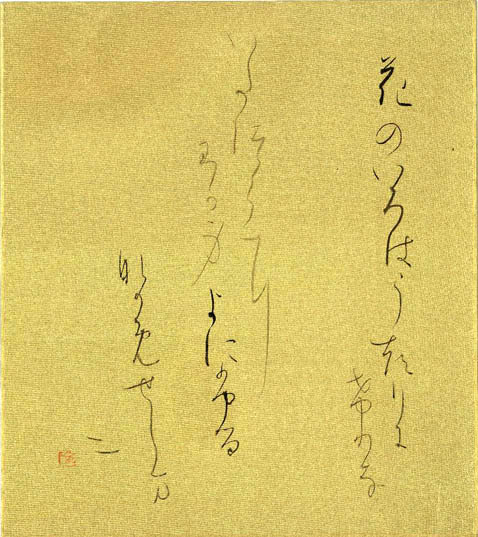 花のいろはうつりに
けりな
いたつらに
わか身よにふる
なかめせしま
二